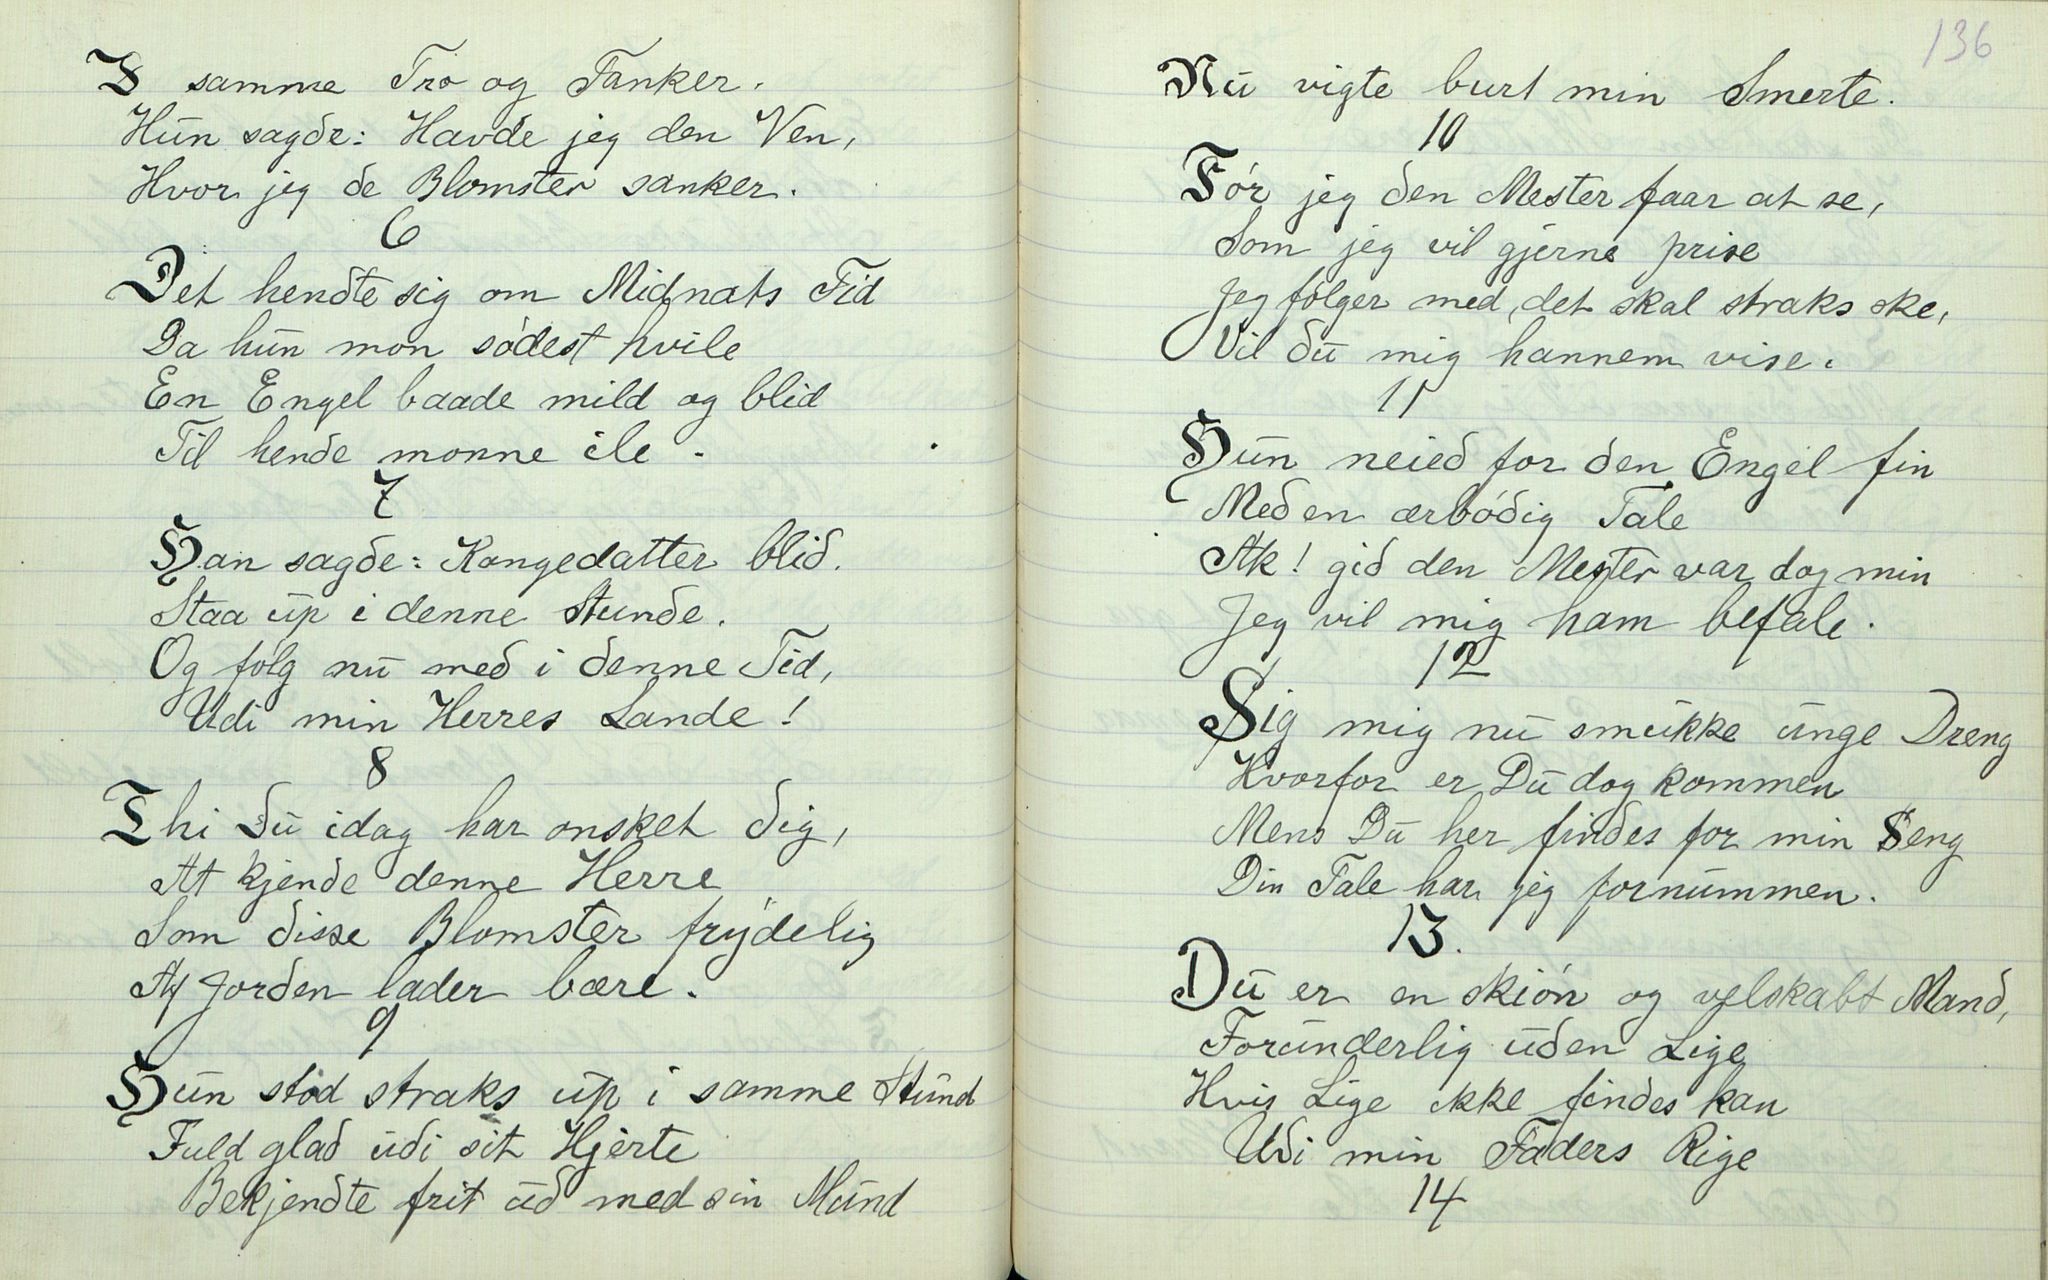 I samme Tro og Tanker.
Hun sagde: Havde jeg den Ven,
Hvor jeg de Blomster sanker.
6
Det hendte sig om Midnats Tid
Da hun mon södest hvile
En Engel baade mild og blid
Til hende monne ile.
7
Han sagde: Kongedatter blid.
Staa up i denne Stunde.
Og fölg nu med i denne Tid,
Udi min Herres Lande!
8
Thi du idag har onsket dig,
At kjende denne Herre
Som disse Blomster frydelig
Af Jorden lader bære.
9
Hun stod straks up i samme Stund
Fuld glad udi sit Hjerte
Bekjendte frit ud med sin Mund
136
Nu vigte burt min Smerte.
10
För jeg den Mester faar at se,
Som jeg vil gjerne prise
Jeg fölger med, det skal straks ske,
Vil du mig hannem vise.
11
Hun neied for den Engel fin
Med en ærbödig Tale
Ak! gid den Mester var dog min
Jeg vil mig ham befale.
12
Sig mig nu smukke unge Dreng
Hvorfor er Du dog kommen
Mens Du her findes for min Seng
Din Tale har jeg fornummen.
13.
Du er en skiön og velskabt Mand,
Forunderlig uden Lige
Hvis Lige ikke findes kan
Udi min Faders Rige
14